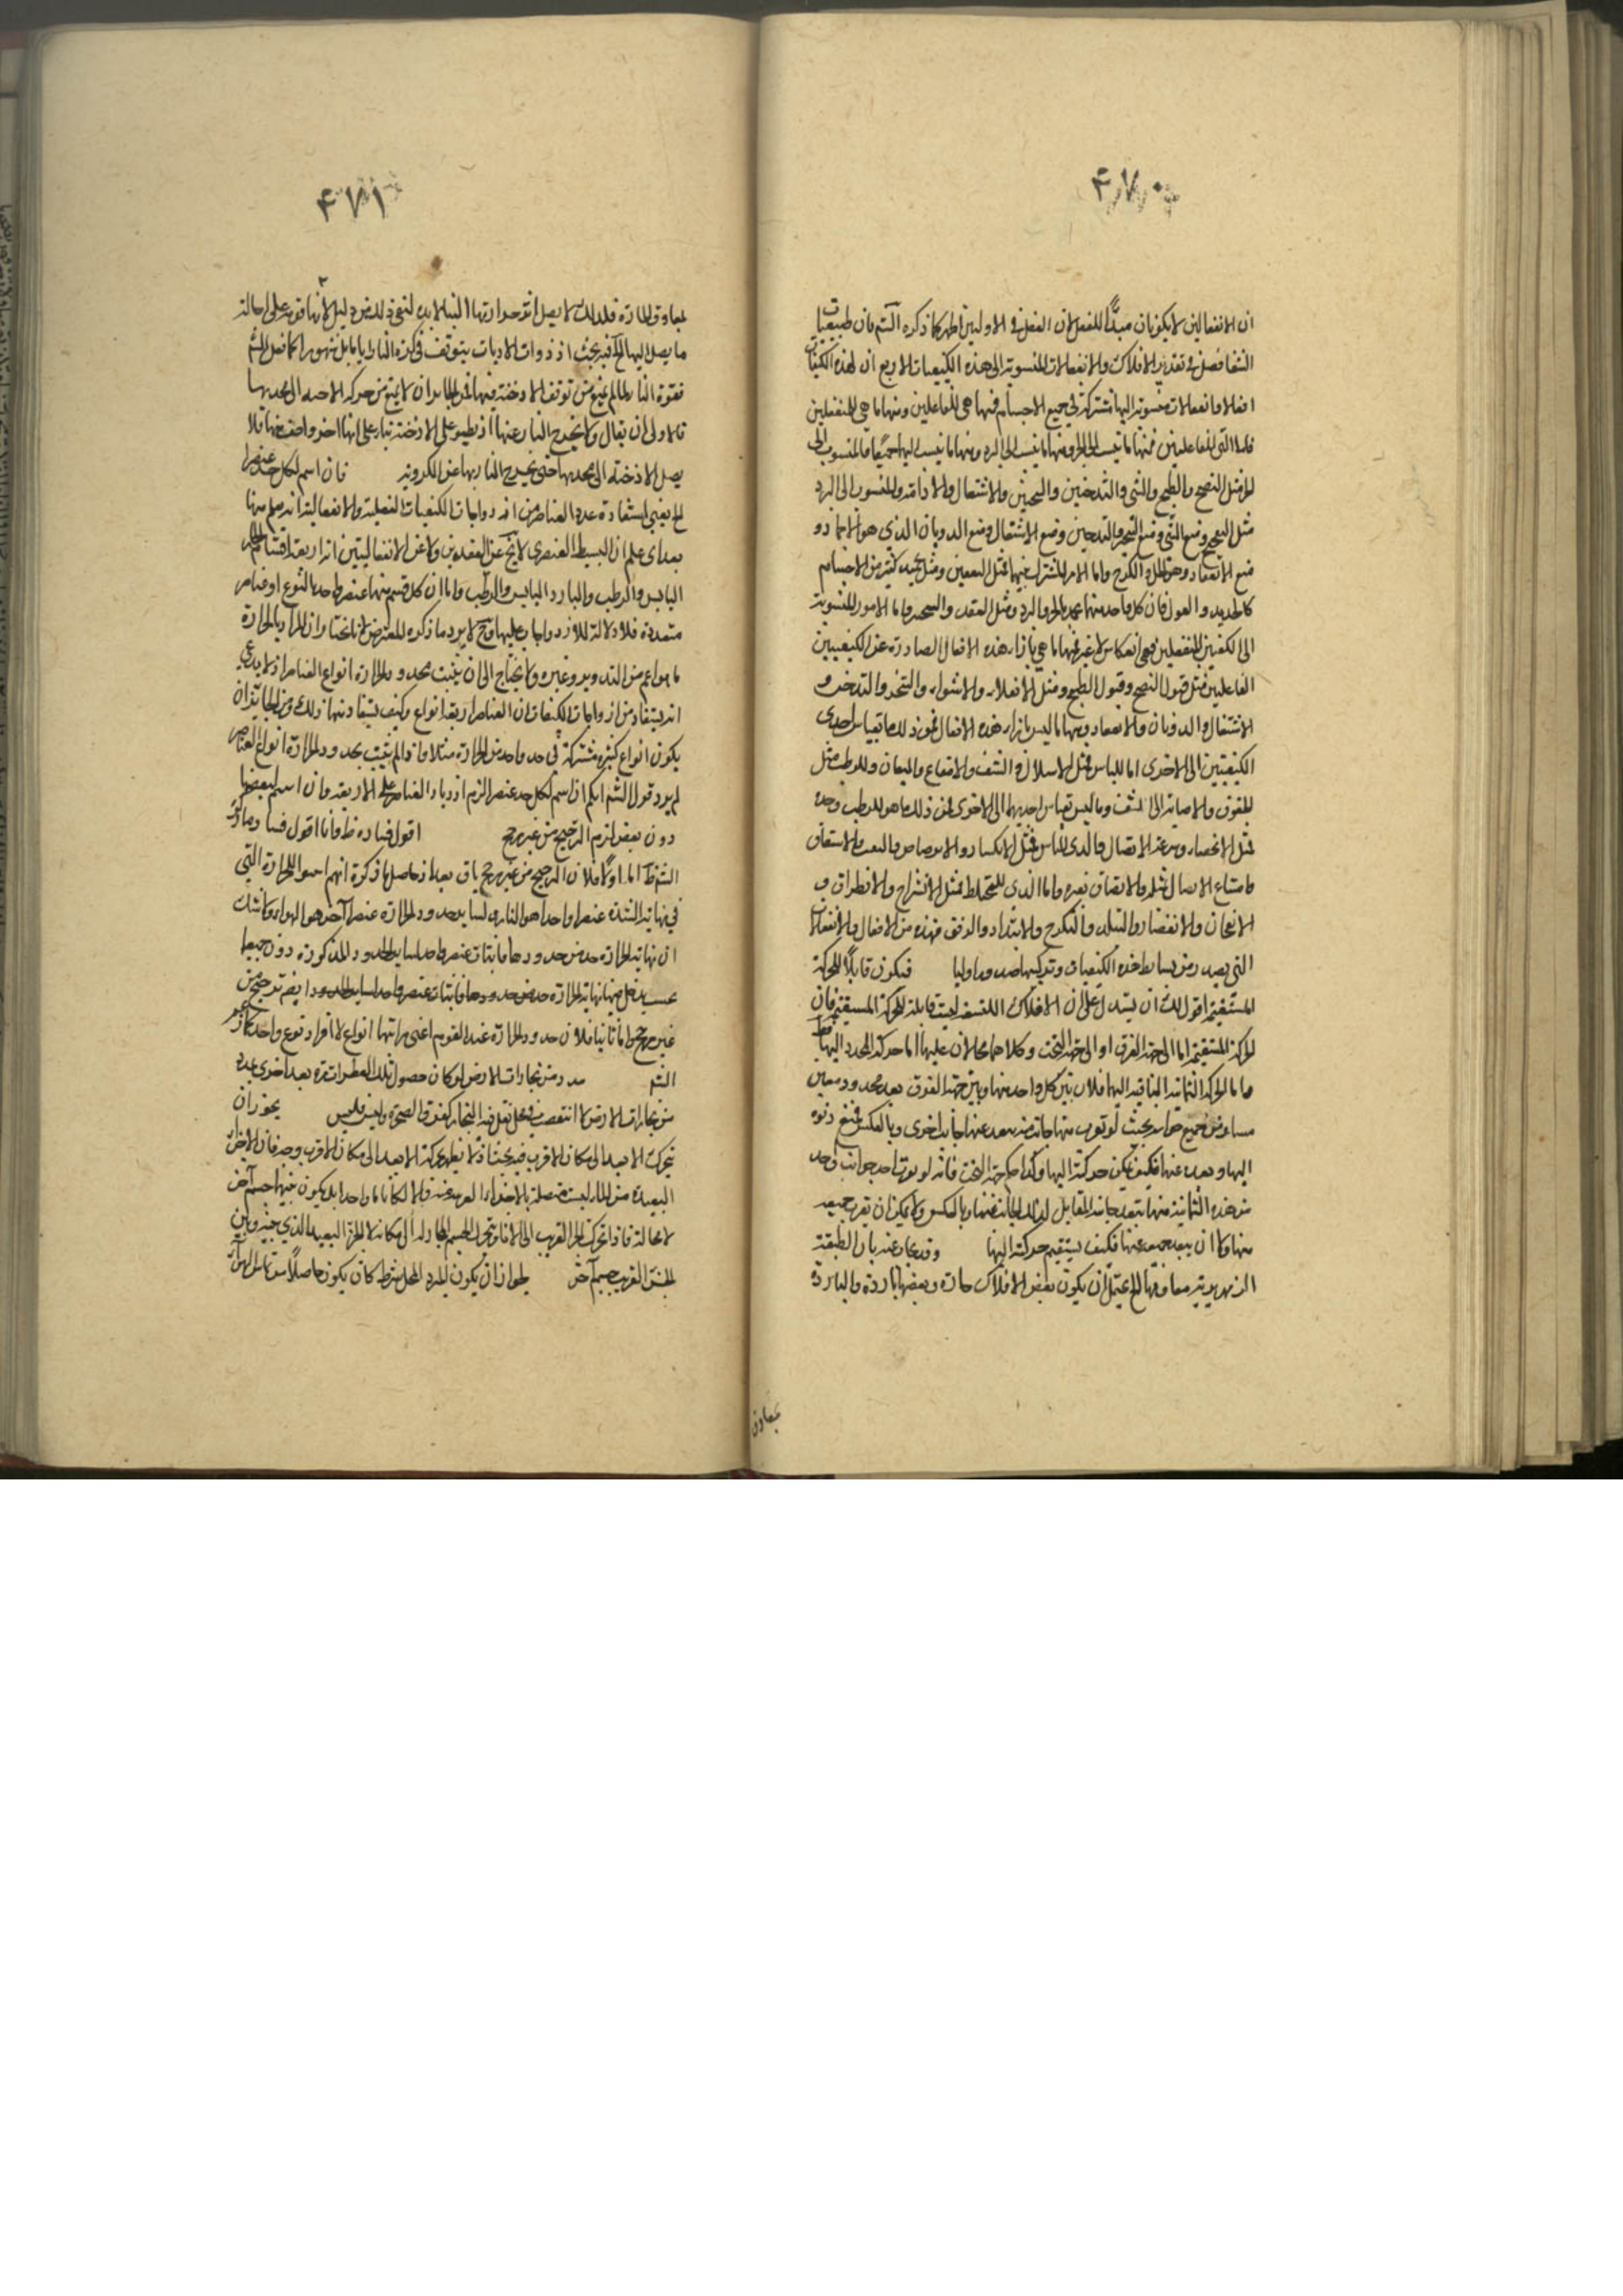 ۴۷۰
ان الانفعاليتين لا يكونان مبدأ للفعل لان الفعل في الاوليين اظهر كما ذكره الشم فان طبيعيات
الشفا فصل في تقدير الافلاك والانفعالات المنسوبة الى هذه الكيفيات الاربع ان لهذه الكيفيات
افعالا وانفعالات منسوبة اليها تشترك في جميع الاجسام فمنها هي للفاعلين ومنها ما هي للمنفعلين
فاما التي للفاعلين فمنها ما ينسب الى الحر ومنها ما ينسب الى البرد ومنها ما ينسب اليهما جميعا فالمنسوب الى
الحر مثل النضج والطبخ والشي والتدخين والتبخير والاشتعال والاذابة والمنسوب الى البرد
مثل التفجيج ومنع الشي ومنع التبخير والتدخين ومنع الاشتعال ومنع الذوبان الذي هو الاجماد و
منع الانعقاد وهو الحل والكرج واما الامر المشترك بينهما مثل التعفين ومثل تجميد كثير من الاجسام
كالحديد و فان كل واحد منهما يجمد بالحر والبرد ومثل العقد و واما الامور المنسوبة
الى الكيفيتين المنفعلتين فهي انعكاس لا غير فمنها ما هي بازاء هذه الافعال الصادرة عن الكيفيتين
الفاعليتين مثل قبول النضج وقبول الطبخ ومثل الانقلاء والانشواء والتبخر والتدخن و
الاشتعال والذوبان والانعقاد ومنها ما ليس بازاء هذه الافعال لكن ذلك ما بقياس احدى
الكيفيتين الى الاخرى اما لليابس مثل الابتلال و النشف والانتقاع والميعان وللرطب مثل
الجفوف والاجابة الى النشف وما ليس بقياس احديهما الى الاخرى فمن ذلك ما هو للرطب وحده
مثل الانحصار وسرعة الاتصال والذي لليابس فمثل الانكسار و والتفتت والانشقاق
وامتناع الاتصال بمثله والالتصاق بغيره واما الذي للمختلط فمثل الانشراح والانطراق و
الانعجان والانعصار والتلبد والتكرج والامتداد والترقق فهذه من الافعال والانفعالات
التي تصدر من بسائط هذه الكيفيات وتركيبها صدورا اوليا فيكون قابلا للحركة
المستقيمة اقول لك ان يستدل على ان الافلاك التسعة ليست قابلة للحركة المستقيمة فان
الحركة المستقيمة اما الى جهة الفوق او الى جهة التحت وكلاهما محالان عليها اما حركة المحدد اليها فظ
واما الحركة الثمانية الباقية اليها فلان بين كل واحد منها وبين جهة الفوق بعد محدود معين
مساو من جميع جوانبه بحيث لو قرب منها جانب منه بعد عنها جانب اخرى وبالعكس فمنع دنوه
اليها وبعده عنها فكيف يمكن حركة اليها وكذا حكم جهة التحت فانه لو قرب احد جوانب واحد
من هذه الثمانية منها يتبعد جانبه المقابل لذلك الجانب عنها وبالعكس ولا يمكن ان يقرب جميعه
منها ولا ان يبعد جميعه عنها فكيف يستقيم حركة اليها وقد يجاب عنه بان الطبقة
الزمهريرية معاوقها الخ يحتمل ان يكون بعض الافلاك حارة وبعضها باردة والباردة
يعاوق
۴۷۱
يعاوق الحارة فلذلك لا يصل اثر حرارتها الينا لابد لنفي ذلك من دليل لانها قوية على احالة
ما يصل اليها الخ فيه بحث اذ ذوات الاذناب يتوقف في كرة النار اياما بل شهورا كما نقل الشم
فقوة النار لما لم يمنع من توقف الادخنة فيها فمن الجائز ان لا يمنع من حركة الادخنة الى محدبها
فالاولى ان يقال ولا يخرج النار عنها اذ يطيو على الادخنة بناء على انها اخف واضعف منها فلا
يصل الادخنة الى محدبها حتى يخرج النار بها عن الكروية فان اسم لكل حد عنصرا
الخ يعني استفادة عدد العناصر من ازدواجات الكيفيات الفعلية والانفعالية انه علم منها
بعد اي علم ان البسيط العنصري لا يخ عن الفعليتين ولا عن الانفعاليتين انه اربعة اقسام الحار
اليابس والرطب والبارد اليابس والرطب واما ان كل قسم منها عنصر واحد بالنوع او عناصر
متعددة فلا دلالة للازدواجات عليها وح لا يرد ما ذكره المعترض لانا نختار ان المراد بالحرارة
ما هو اعم من الشديد وغيره ولا يحتاج الى ان يثبت بحدود الحرارة انواع العناصر اذ لا يدعي
انه يستفاد من ازدواجات الكيفيات ان العناصر اربعة انواع وكيف يستفاد منها ذلك ومن الجائز ان
يكون انواع كثيرة مشتركة في حد واحد من الحرارة مثلا واذا لم يثبت بحدود الحرارة انواع العناصر
لم يرد قول الشم ايكم ان اسم لكل حد عنصر الزم ازدياد العناصر على الاربعة وان اسم لبعضها
دون بعض لزم الترجيح من غير مرجح اقول فساده ظ وانا اقول فساد ما ذكره
الشم ظ اما اولا فلان الترجيح من غير مرجح باق بعد اذ حاصل ما ذكره انهم اثبتوا للحرارة التي
في نهاية الشدة عنصرا واحدا هو النار ولسائر حدود الحرارة عنصرا آخر هو الهواء ولا شك
ان نهاية الحرارة حد من حدودها فاثبات عنصر واحد لسائر الحدود المذكورة دون جميعها
بحيث يدخل فيها نهاية الحرارة حد من حدودها فاثبات عنصر واحد لسائر الحدود ايضا ترجيح من
غير مرجح واما ثانيا فلان حدود الحرارة عند القوم اعني مراتبها انواع لا افراد نوع واحد كما زعم
الشم من بخارات الارض لو كان حصول تلك القطرات مرة بعد اخرى
من بخارات الارض لا انتقصت في محل يقل فيه البخار كفوق الصخرة وليس فليس يجوز ان
يتحرك الابعد الى مكان الاقرب فيه بحث اذ لا يظهر حركة الابعد الى مكان الاقرب وجه فان الاجزاء
البعيدة من الماء ليست متصلة بالاجزاء القريبة منه والا لكانا ماء واحدا بل يكون بينهما جسم آخر
لا محالة فاذا تحرك الجزء القريب الى الاناء وتحرك الجسم المجاور له الى مكانه لا الجزء البعيد الذي بينه وبين
الجزء القريب جسم آخر لجواز ان يكون البرد المحل شرط كان يكون حاصلا